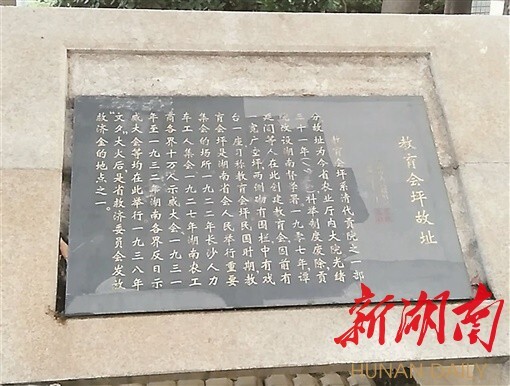 教育会坪故址
教育会坪系清代贡院之一部
分,故址为今省农业厅内大院。光绪
三十一年(一九〇五)科举制度废除,贡
院改设湖南督学署。一九〇七年,谭
延闿等人在此创建教育会。因前有
一宽广空坪,两侧砌有围栏,中有戏
台一座,习称教育会坪。民国时期,教
育会坪是湖南省会人民举行重要
集会的场所。一九二二年长沙人力
车工人集会、一九二七年湖南农工
商各界十万人示威大会、一九三一
年至一九三二年湖南各界反日示
威大会等均在此举行。一九三八年
“文夕”大火后,是省救济委员会发放
救济金的地点之一。
新湖南
HUNAN DAILY